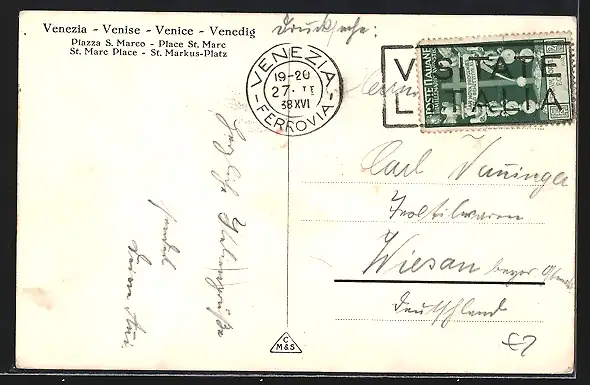 Venezia - Venise - Venice - Venedig
Piazza S. Marco - Place St. Marc
St. Marc Place - St. Markus-Platz
Drucksache:
VENEZIA
19-20
27·II
38XVI
FERROVIA
VISITATE
L'ITALIA
POSTE ITALIANE
Herrn
Carl
Textilwaren
Wiesau bayer.
Deutschland
Herzliche
sendet
C
M&S